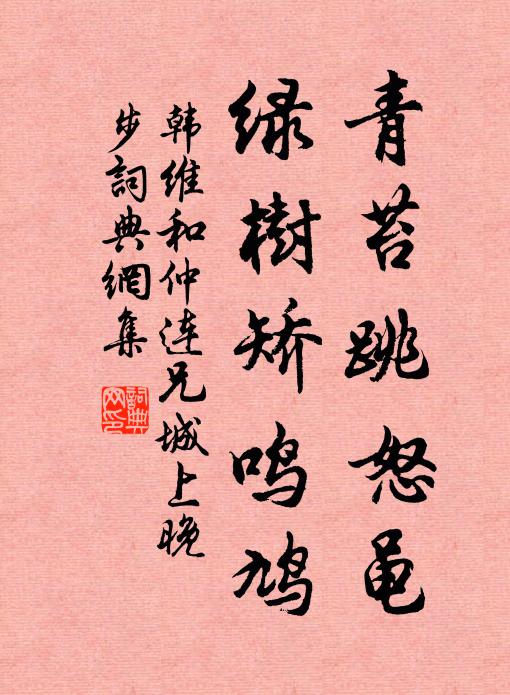 青苔跳怒黾
绿樹矫鸣鸠
韩维和仲连兄城上晚
步詞典網集
詞典网印